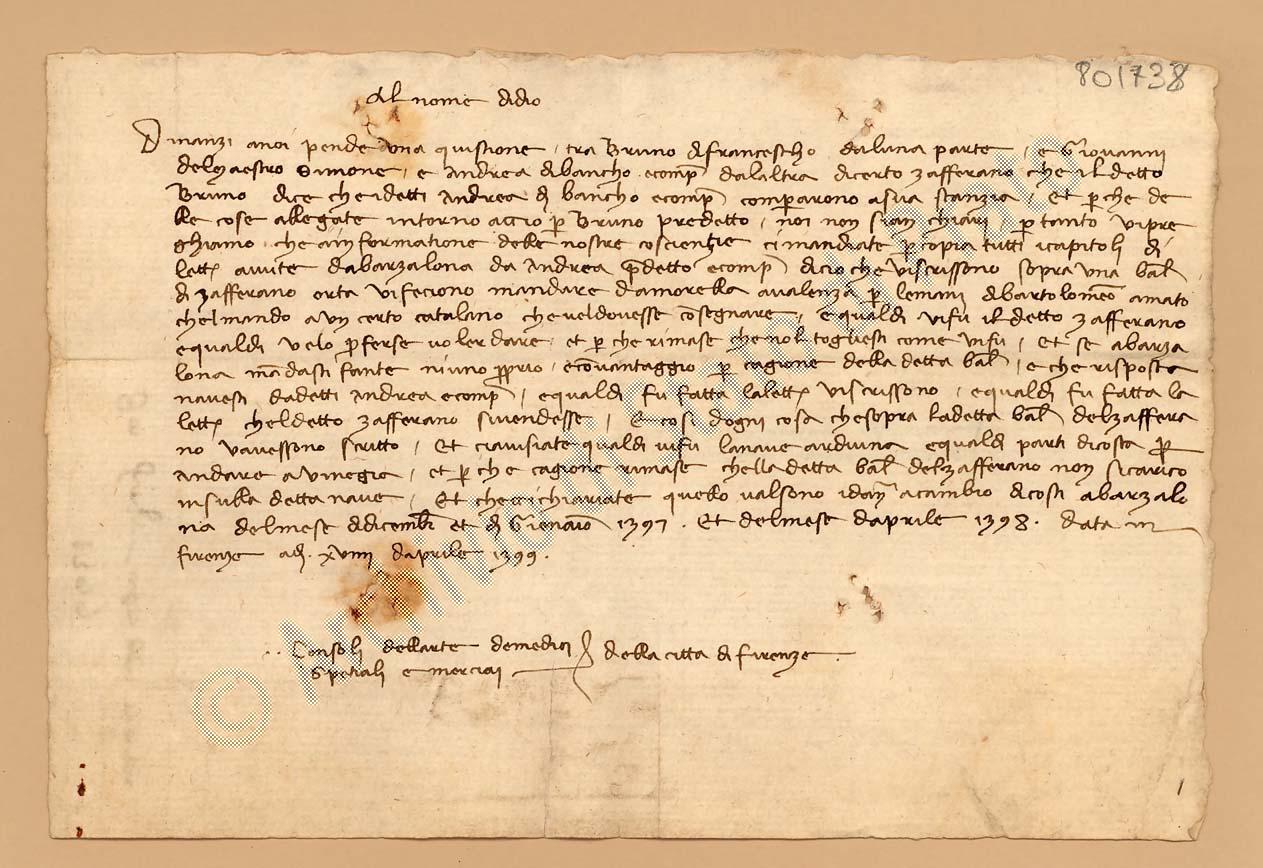 801738
Al nome didio
Dinanzi anoi pende una quistione, tra Bruno di francescho daluna parte, e Giovanni
delmaestro Simone, e Andrea dibancho ecomp dalaltra dicerto zafferano cheildetto
Bruno dice cheidetti Andrea di bancho ecomp comperarono asua stanzia, et perche de
lle cose allegate intorno accio p Bruno predetto, noi non sian chiari ptanto vipre
ghiamo che ainformatione delle nostre coscienzie cimandiate p copia tutti icapitoli di
lett avute dabarzalona da Andrea pdetto ecomp dicio che viscrissono sopra una bal
di zafferano orta vifeciono mandare damorella avalenza p lemani dibartolomeo amato
chelmando aun certo catalano cheveldovesse cosegnare, equaldi vifu il detto zafferano
equaldi velo pferse volerdare et perche rimase chenol togliesti come vifu, et se abarza
lona mandasti fante niuno pprio, econvantaggio p cagione della detta bal, e che risposta
navesti dadetti Andrea ecomp, equaldi fu fatta lalett viscrissono, equaldi fu fatta la
lett cheldetto zafferano sivendesse, e cosi dogni cosa chesopra ladetta bal delzaffera
no vavessono scritto, et ciavisiate qualdi vifu lanave arduina equaldi parti dicosta p
andare avinegia, et perche cagione rimase chella detta bal delzafferano non sicarico
insulla detta nave, Et checichiariate quello valsono idan acambio dicosti abarzalo
na delmese didicembre et di Giennaio 1397. Et delmese daprile 1398. data in
firenze adi xviiii daprile 1399.
Consoli dellarte demedici della citta di firenze
Spetiali e merciai
© Archivio di Stato di Prato